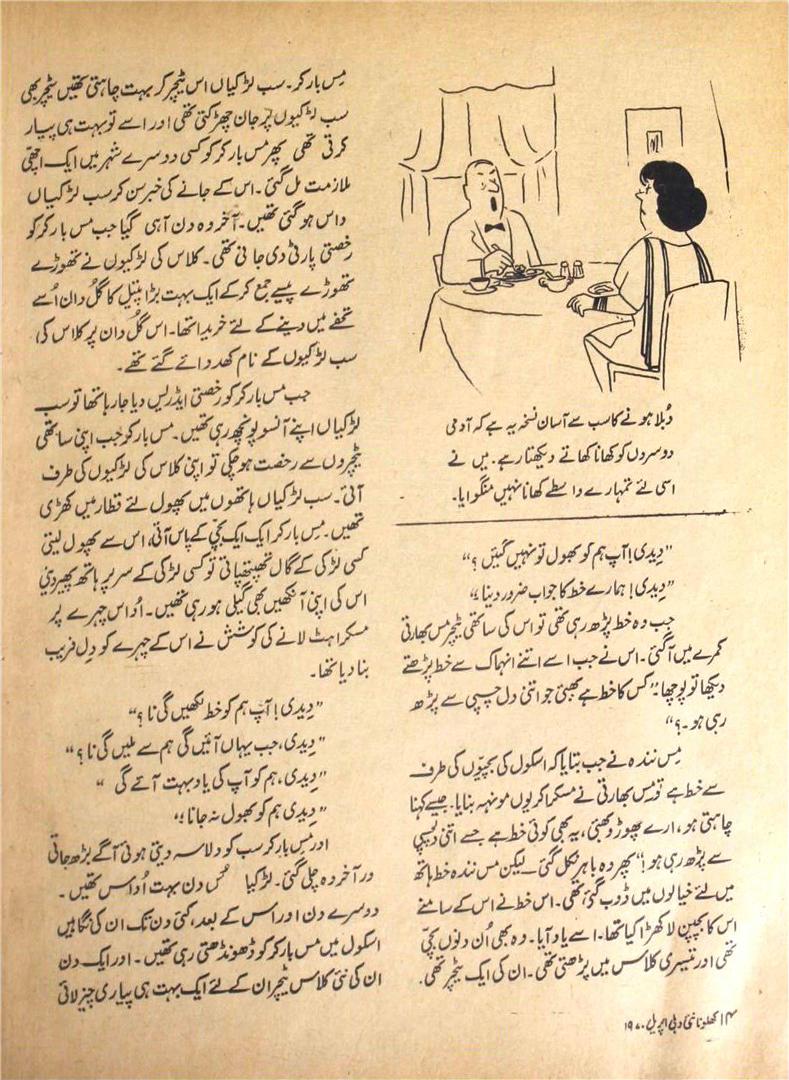 دُبلا ہونے کا سب سے آسان نسخہ یہ ہے کہ آدمی
دوسروں کو کھانا کھاتے دیکھتا رہے۔ میں نے
اسی لئے تمہارے واسطے کھانا نہیں منگوایا۔
"دیدی! آپ ہم کو بھول تو نہیں گئیں؟"
"دیدی! ہمارے خط کا جواب ضرور دینا،"
جب وہ خط پڑھ رہی تھی تو اس کی ساتھی ٹیچر مس بھارتی
کمرے میں آ گئی۔ اس نے جب اسے اتنے انہماک سے خط پڑھتے
دیکھا تو پوچھا۔ "کس کا خط ہے بھئی جو اتنی دل چسپی سے پڑھ
رہی ہو۔؟"
مِس نندہ نے جب بتایا کہ اسکول کی بچیّوں کی طرف
سے خط ہے تو مِس بھارتی نے مسکرا کر یوں مونہہ بنایا۔ جیسے کہنا
چاہتی ہو، ارے چھوڑو بھئی، یہ بھی کوئی خط ہے جسے اتنی دلچسپی
سے پڑھ رہی ہو!" پھر وہ باہر نکل گئی۔ لیکن مس نندہ خط ہاتھ
میں لئے خیالوں میں ڈوب گئی تھی۔ اس خط نے اس کے سامنے
اس کا بچپن لا کھڑا کیا تھا۔ اسے یاد آیا۔ وہ بھی اُن دنوں بچّی
تھی اور تیسری کلاس میں پڑھتی تھی۔ ان کی ایک ٹیچر تھی۔
مِس بارکر۔ سب لڑکیاں اس ٹیچر کر بہت چاہتی تھیں ٹیچر بھی
سب لڑکیوں پر جان چھڑکتی تھی اور اسے تو بہت ہی پیار
کرتی تھی پھر مس بارکر کو کسی دوسرے شہر میں ایک اچھّی
ملازمت مل گئی۔ اس کے جانے کی خبر سن کر سب لڑکیاں
داس ہو گئی تھیں۔ آخر وہ دن آ ہی گیا جب مس بارکر کو
رخصتی پارٹی دی جانی تھی۔ کلاس کی لڑکیوں نے تھوڑے
تھوڑے پیسے جمع کر کے ایک بہت بڑا پیتل کا گلُ دان اُسے
تحفے میں دینے کے لئے خریدا تھا۔ اس گُل دان پر کلاس کی
سب لڑکیوں کے نام کھدوائے گئے تھے۔
جب مس بارکر کو رخصتی ایڈریس دیا جا رہا تھا تو سب
لڑکیاں اپنے آنسو پونچھ رہی تھیں۔ مس بارکر جب اپنی ساتھی
ٹیچروں سے رخصت ہو چکی تو اپنی کلاس کی لڑکیوں کی طرف
آئی۔ سب لڑکیاں ہاتھوں میں پھول لئے قطار میں کھڑی
تھیں۔ مِس بارکر ایک ایک بچّی کے پاس آتی، اس سے پھول لیتی
کسی لڑکی کے گال تھپتھپاتی تو کسی لڑکی کے سر پر ہاتھ پھیر دیتی
اس کی اپنی آنکھیں بھی گیلی ہو رہی تھیں۔ اُداس چہرے پر
مسکراہٹ لانے کی کوشش نے اس کے چہرے کو دِل فریب
بنا دیا تھا۔
"دِیدی! آپ ہم کو خط لکھیں گی نا؟"
"دِیدی، جب یہاں آئیں گی ہم سے ملیں گی نا؟"
"دِیدی، ہم کو آپ کی یاد بہت آئے گی"
"دِیدی ہم کو بھول نہ جانا،"
اور مِس بارکر سب کو دلاسہ دیتی ہوئی آگے بڑھ جاتی
ور آخر وہ چلی گئی۔ لڑکیا دن بہت اُداس تھیں۔
دوسرے دن اور اس کے بعد، کئی دن تک ان کی نگاہیں
اسکول میں مس بارکر کو ڈھونڈھتی رہی تھیں۔ اور ایک دن
ان کی نئی کلاس ٹیچر ان کے لئے ایک بہت ہی پیاری چیز لائی
۱۴ کھلونا نئی دہلی اپریل ۱۹۷۰